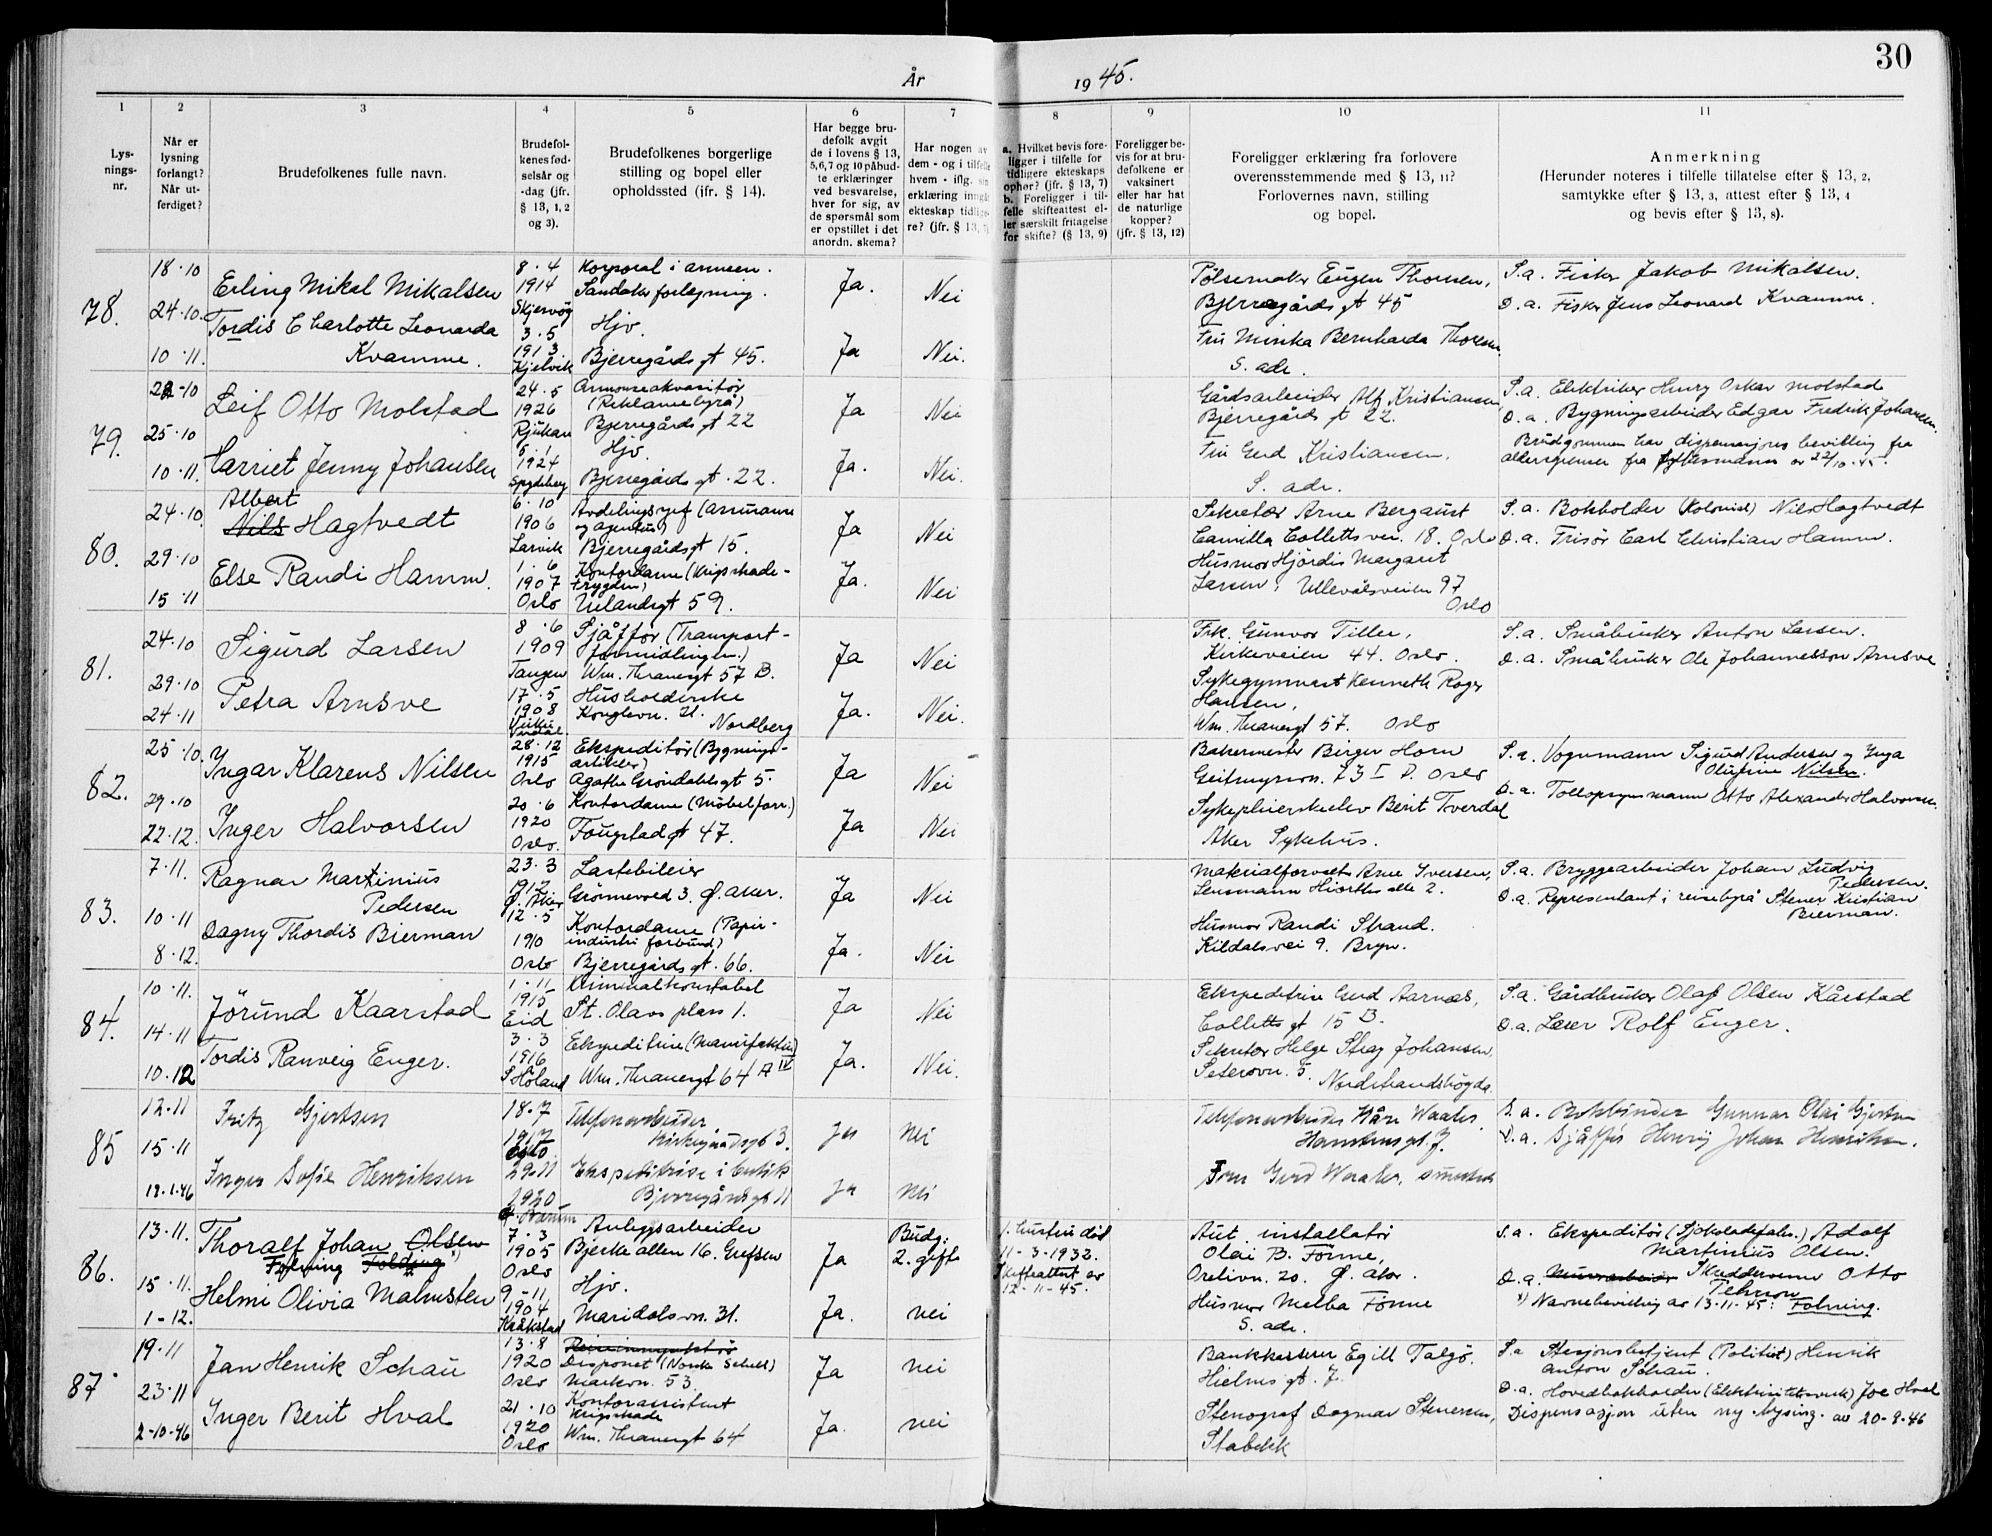 30
År 1945.
1 2 3 4 5 6 7 8 9 10 11
Lys-
nings-
nr.
Når er
lysning
forlangt?
Når ut-
ferdiget?
Brudefolkenes fulle navn.
Brudefol-
kenes fød-
selsår og
-dag (jfr.
§ 13, 1, 2
og 3).
Brudefolkenes borgerlige
stilling og bopel eller
opholdssted (jfr. § 14).
Har begge bru-
defolk avgit
de i lovens § 13,
5,6,7 og 10 påbud-
te erklæringer
ved besvarelse,
hver for sig, av
de spørsmål som
er opstillet i det
anordn. skema?
Har nogen av
dem - og i tilfelle
hvem - iflg. sin
erklæring inngått
ekteskap tidlige-
re? (jfr. § 13, 7)
a. Hvilket bevis fore-
ligger i tilfelle for
tidligere ekteskaps
ophør? (jfr. § 13, 7)
b. Foreligger i til-
felle skifteattest el-
ler særskilt fritagelse
for skifte? (§ 13, 9)
Foreligger be-
vis for at bru-
defolkene er
vaksinert
eller har hat
de naturlige
kopper?
(jfr. § 13, 12)
Foreligger erklæring fra forlovere
overensstemmende med § 13, 11?
Forlovernes navn, stilling
og bopel.
Anmerkning
(Herunder noteres i tilfelle tillatelse efter § 13, 2,
samtykke efter § 13, 3, attest efter § 13, 4
og bevis efter § 13, 8).
78.
18.10
24.10.
10.11.
Erling Mikal Mikalsen
Tordis Charlotte Leonarda
Kvamme.
8.4
1914
Skjervøy
3.5
1913
Kjelvik
Korporal i armeen.
Sandaker forlegning.
Hjv.
Bjerregårds gt 45.
Ja.
Ja
Nei
Nei.
Pølsemaker Eugen Thorsen,
Bjerregårds gt 45
Fru Minka Bernharda Thorsen
S. adr.
S.a. Fisker Jakob Mikalsen.
D.a. Fisker Jens Leonard Kvamme.
79.
25.10
10.11.
Leif Otto Molstad
Harriet Jenny Johansen
24.5
1926
Rjukan
1924
Spydeberg
Annonseakvisitør
(Reklamebyrå)
Bjerregårds gt 22
Hjv.
Bjerregårds gt. 22.
Ja
Ja.
Nei
Nei.
Gårdsarbeider Alf Kristiansen
Bjerregårds gt 22.
Fru Gerd Kristiansen.
S. adr.
S.a. Elektriker Henry Oskar Molstad
D.a. Bygningsarbeider Edgar Fredrik Johansen.
Brudgommen har dispensasjons bevilling fra
aldersgrensen fra fylkesmannen av 22/10-45.
80.
24.10.
29.10
15.11
Albert
Nils Hagtvedt
Else Randi Hamm.
6.10
1906
Larvik
1.6
1907
Oslo
Avdelingssjef (assuranse
og agentur)
Bjerregårdsgt 15.
Kontordame (Krigsskade-
trygden)
Uelandsgt 59.
Ja
Ja.
Nei
Nei
Sekretær Arne Bergaust
Camilla Colletts vei. 18. Oslo
Husmor Hjördis Margaret
Larsen, Ullevålsveien 97
Oslo
S.a. Bokholder (Kolonial) Nils Hagtvedt
D.a. Frisør Carl Christian Hamm.
81.
24.10
29.10
24.11
Sigurd Larsen
Petra Arnsve
8.6
1909
Tangen
17.5
1908
Sjåffør (Transport-
formidlingen.)
Wm. Thranesgt 57 B.
Husholderske
Konglevn. 21.
Nordberg
Ja
Ja.
Nei
Nei.
Frk. Gunvor Tiller,
Kirkeveien 44. Oslo.
Sykegymnast Kenneth Roger
Hansen,
Wm. Thranesgt 57. Oslo
S.a. Småbruker Anton Larsen.
D.a. Småbruker Ole Johannesson Arnsve
82.
25.10.
29.10
22.12.
Yngar Klarens Nilsen
Inger Halvorsen
28.12
1915
Oslo
20.6
1920
Oslo.
Ekspeditør (Bygnings-
artikler)
Agathe Grøndahlsgt 5.
Kontordame (Möbelforr.)
Fougstad gt 47.
Ja
Ja
Nei
Nei
Bakermester Birger Horn
Geitmyrsvn. 73 I D. Oslo
Sykepleierskeelev Berit Tverdal
Aker Sykehus.
S.a. Vognmann Sigurd Andersen og Inga
Olufine Nilsen.
D.a. Tollopsynsmann Otto Alexander Halvorsen.
83.
7.11.
10.11
8.12.
Ragnar Martinius
Pedersen
Dagny Thordis Bierman
23.3
1912
Ø. Aker
12.5
1910
Oslo
Lastebileier
Grönnevold 3. Ø. Aker.
Kontordame (Papir-
industri forbund)
Bjerregårds gt. 66.
Ja
Ja.
Nei
Nei
Materialforvalt Arne Iversen,
Lensmann Hiorths alle 2.
Husmor Randi Strand.
Kildalsvei 9. Bryn.
S.a. Bryggearbeider Johan Ludvig
Pedersen.
D.a. Representant i reisebyrå Stener Kristian
Bierman.
84.
10.11.
14.11
10.12
Jörund Kaarstad
Tordis Ranveig Enger.
1.11
1915
Eid
3.3
1916
S Höland
Kriminalkonstabel
St. Olavs plass 1.
Ekspeditrise (Manufaktur)
Wm. Thranesgt 64 A IV
Ja
Ja.
Nei
Nei.
Ekspeditrise Gerd Aarnæs,
Colletts gt 15 B.
Sekretær Helge Stray Johansen,
Setersvn. 5. Nordstrandshögda
S.a. Gårdbruker Olaf Olsen Kårstad
D.a. Lærer Rolf Enger.
85
12.11
15.11
18.1.46
Fritz Gjertsen
Inger Sofie Henriksen
18.7
1917
Oslo
29.11
1920
Telefonarbeider
Kirkegårdsgt 3.
Ekspeditrise i butik
Bjerregårdsgt 11
Ja
Ja
Nei
Nei
Telefonarbeider Kåre Waaler,
Fru Gerd Waaler, smsteds
S.a. Bokbinder Gunnar Olai Gjertsen
D.a. Sjåffør Henry Johan Henriksen.
86.
13.11.
15.11.
1-12.
Thoralf Johan Olsen
Folning
Helmi Olivia Malmsten
7.3
1905
Oslo
9-11,
1904
Kråkstad
Anleggsarbeider
Bjerke alleen 16. Grefsen
Hjv.
Maridalsvn. 31.
Ja
Ja.
Budg:
2. gifte
nei
1. hustru död
11-3-1932.
Skifteattest av
12-11-45.
Aut. installatör
Olai B. Fönne,
Orelivn. 20. Ø. Aker.
Husmor Melba Fönne
S. adr.
S.a. Ekspeditör (Sjokoladefabr.) Adolf
Martinius Olsen.
D.a. Murarbeider Skreddersvenn Otto
x) Navnebevilling av 13-11-45: Folning.
87.
19.11
23.11
2-10-46
Jan Henrik Schau
Inger Berit Hval
13.8
1920
Oslo
21.10
1920
Oslo
Disponet (Norsk Schell)
Markvn. 53.
Kontorassistent
Krigsskade
Wm. Thranesgt 64
Ja
Ja.
nei
nei
Bankkasserer Egill Talgø.
Hjelms gt. 7.
Stenograf Dagmar Stenersen,
Stabekk
S.a Stasjonsbetjent (Politiet) Henrik
Anton Schau.
D.a. Hovedbokholder (Elektrisitetsverk) Joe Hval
Dispensasjon uten ny lysing. av 20-9-46